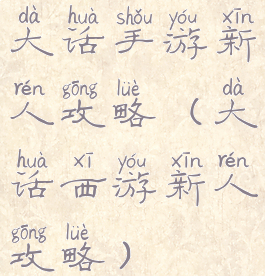 dà huà shǒu yóu xīn
大话手游新
rén gōng lüè dà
人攻略（大
huà xī yóu xīn rén
话西游新人
gōng lüè
攻略）